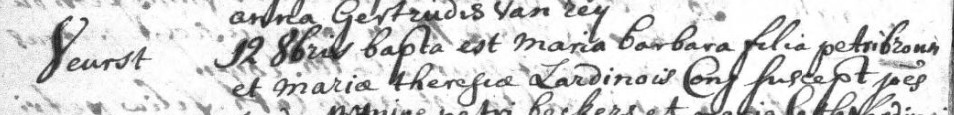 anna Gertrudis Van rey
Veurst 12 8bris bapta est maria barbara filia petri broun
et mariæ theresiæ Lardinois Conj suscept pēs
nomine petri beckers et